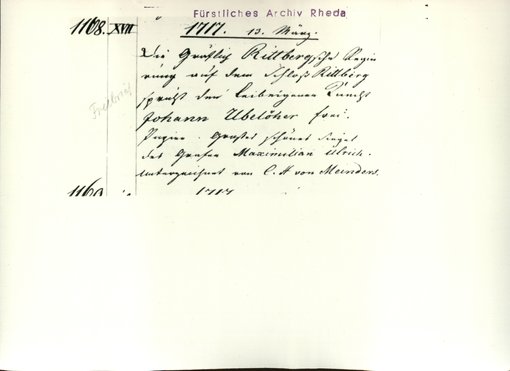 Fürstliches Archiv Rheda
1168. XVII 1717. 13. März.
Die Gräflich Rittbergsche Regie
rung auf dem Schloß Rittberg
spricht den Leibeigenen Knecht
Johann Ubelöher frei.
Papier. Großes schönes Siegel
des Grafen Maximilian Ulrich.
Unterzeichnet von C. H von Meinders.
Freibrief
1169 1717